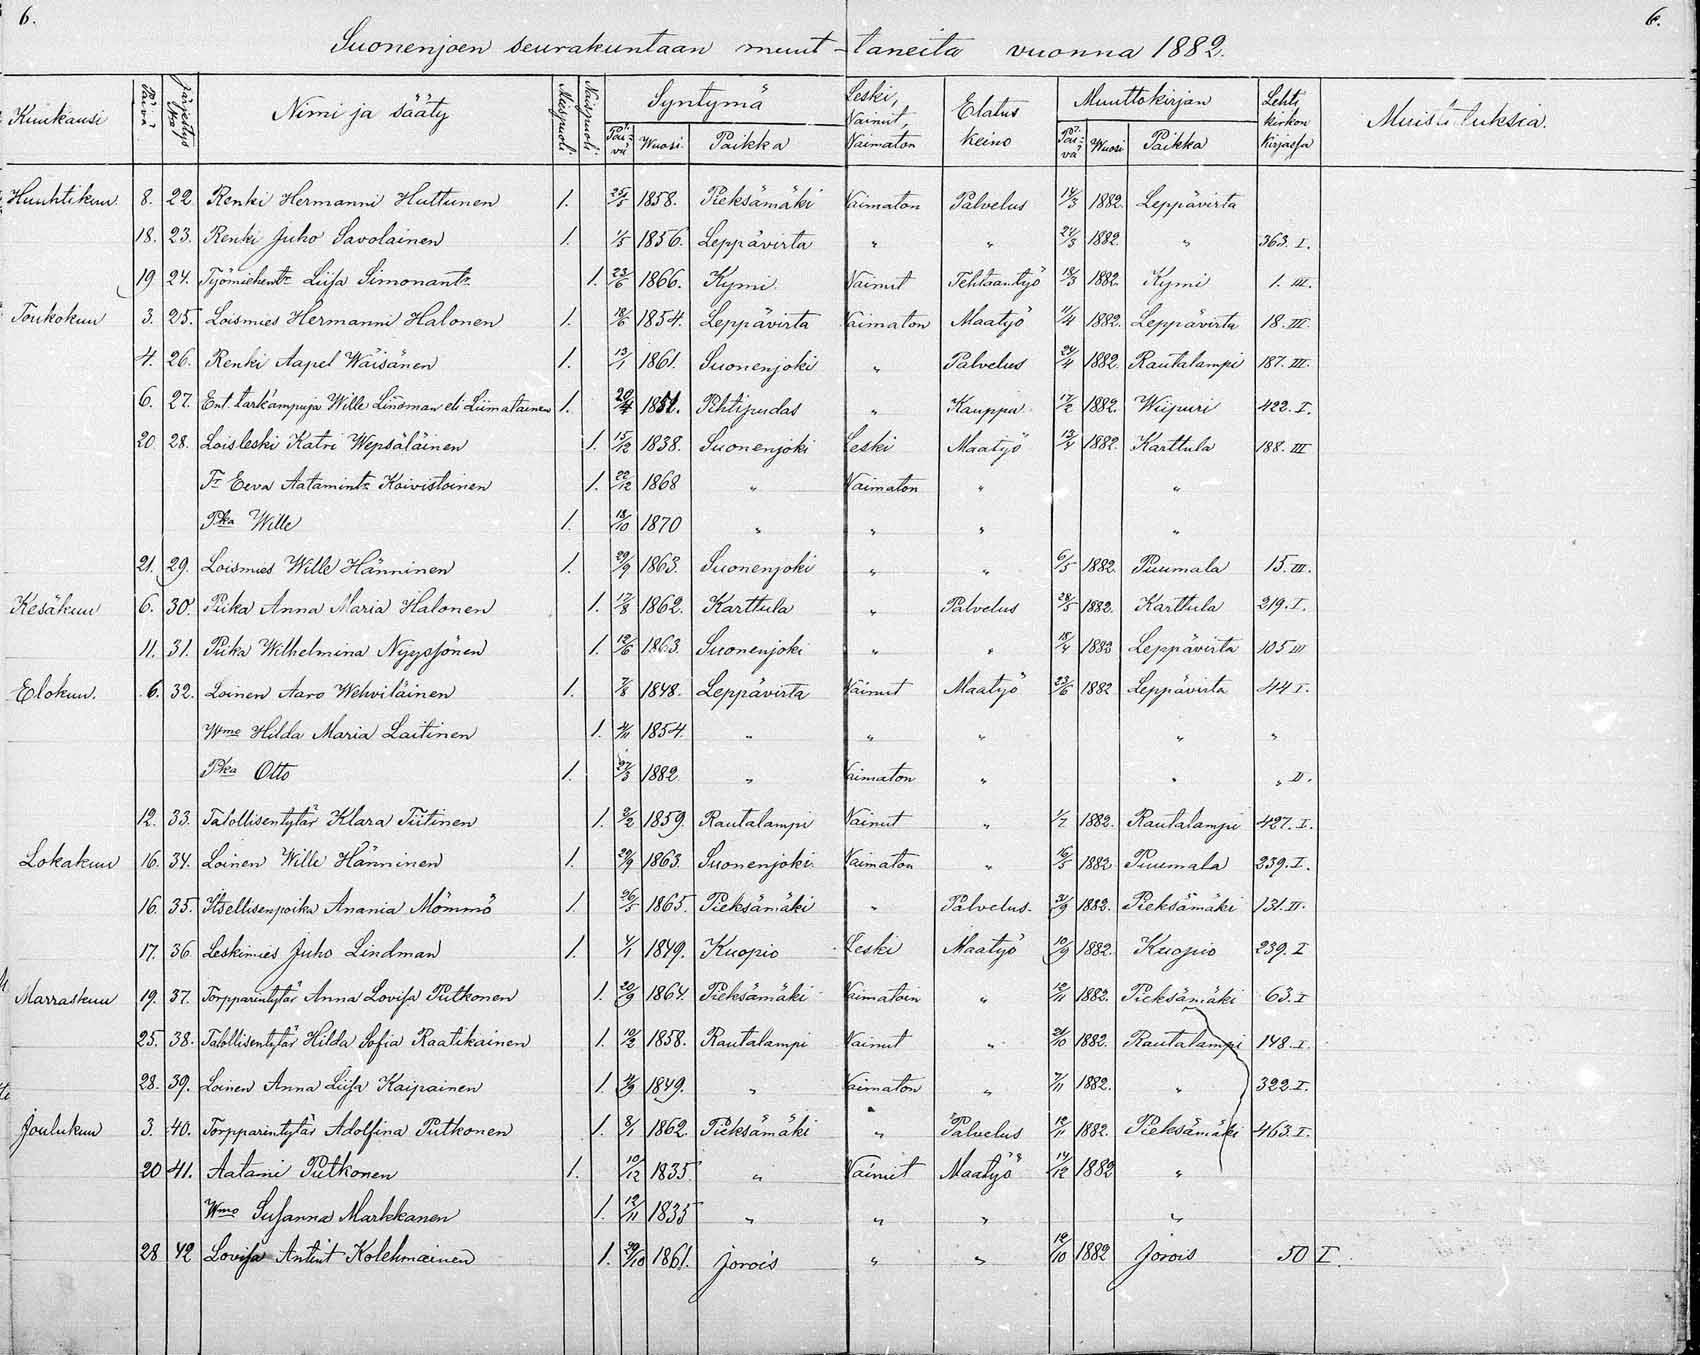 6. 6.
Suonenjoen seurakuntaan muut-taneita vuonna 1882.
Kuukausi Päivä Järjestys Nro Nimi ja sääty Miespuoli Naispuoli Syntymä Leski, Nainut, Naimaton Elatus keino Muuttokirjan Lehti kirkon kirjassa Muistutuksia.
Päivä Wuosi Paikka Päivä Wuosi Paikka
Huuhtikuu 8. 22 Renki Hermanni Huttunen 1. 25/5 1858. Pieksämäki Naimaton Palvelus 14/3 1882. Leppävirta
18. 23. Renki Juho Savolainen 1. 1/5 1856. Leppävirta " " 24/3 1882. " 363. I.
19 24. Työmiehentr Liisa Simonantr 1. 23/6 1866. Kymi Nainut Tehtaantyö 18/3 1882. Kymi 1. III.
Toukokuu 3. 25. Loismies Hermanni Halonen 1. 18/6 1854. Leppävirta Naimaton Maatyö 11/4 1882. Leppävirta 18. III.
4. 26. Renki Aapel Wäisänen 1. 13/1 1861. Suonenjoki " Palvelus 24/4 1882. Rautalampi 187. III.
6. 27. Ent tark'ampuja Wille Linsman eli Liimatainen 1. 20/4 1851. Pihtipudas " Kauppa 17/2 1882. Wiipuri 422. I.
20 28. Loisleski Katri Wepsäläinen 1. 15/12 1838. Suonenjoki Leski Maatyö 1882. Karttula 188. III
Tr Eeva Aatamintr Koivistoinen 1. 22/12 1868 " Naimaton " "
Pka Wille 1. 18/10 1870 " " " "
21. 29. Loismies Wille Hänninen 1. 29/9 1863. Suonenjoki " " 6/5 1882. Puumala 15. III.
Kesäkuu 6. 30. Piika Anna Maria Halonen 1. 17/8 1862. Karttula " Palvelus 28/5 1882. Karttula 219. I.
11. 31. Piika Wilhelmina Nyyssönen 1. 12/6 1863. Suonenjoki " " 18/4 1883 Leppävirta 105 III
Elokuu. 6. 32. Loinen Aaro Wehviläinen 1. 7/8 1848. Leppävirta Nainut Maatyö 23/6 1882 Leppävirta 44 I.
Wmo Hilda Maria Laitinen 1. 1854. " " " " "
Pka Otto 1. 27/3 1882 " Naimaton " " " II.
12. 33. Talollisentytär Klara Tiitinen 1. 2/2 1859. Rautalampi Nainut " 1/7 1882. Rautalampi 427. I.
Lokakuu 16. 34. Loinen Wille Hänninen 1. 29/9 1863. Suonenjoki Naimaton " 16/5 1882. Puumala 239. I.
16. 35. Itsellisenpoika Anania Mömmö 1. 26/5 1865. Pieksämäki " Palvelus. 21/9 1882. Pieksämäki 131. II.
17. 36 Leskimies Juho Lindman 1. 4/1 1849. Kuopio Leski Maatyö 10/9 1882. Kuopio 239. I
Marraskuu 19. 37. Torpparintytär Anna Lovisa Putkonen 1. 20/9 1864. Pieksämäki Naimatoin " 12/11 1882. Pieksämäki 63. I
25. 38. Talollisentytär Hilda Sofia Raatikainen 1. 12/2 1858. Rautalampi Nainut " 21/10 1882. Rautalampi 148. I.
28. 39. Loinen Anna Liisa Kaipainen 1. 1849. " Naimaton " 7/11 1882. " 322. I.
Joulukuu 3. 40. Torpparintytär Adolfina Putkonen 1. 8/1 1862. Pieksämäki " Palvelus 12/11 1882. Pieksämäki 463. I.
20 41. Aatami Putkonen 1. 10/12 1835. " Nainut Maatyö 14/12 1882 "
Wmo Susanna Markkanen 1. 12/11 1835 " " " "
28 42 Lovisa Antint Kolehmainen 1. 29/10 1861. Jorois " " 12/10 1882 Jorois 50 I.